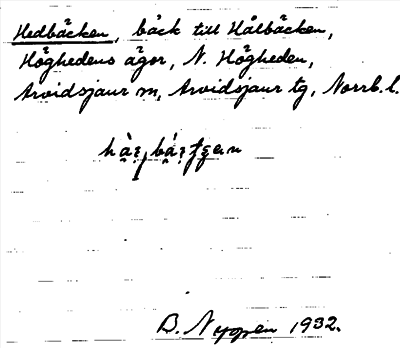 Hedbäcken, bäck till Hålbäcken,
Höghedens ägor, N. Högheden,
Arvidsjaur sn, Arvidsjaur tg, Norrb. l.
B. Nygren 1932.